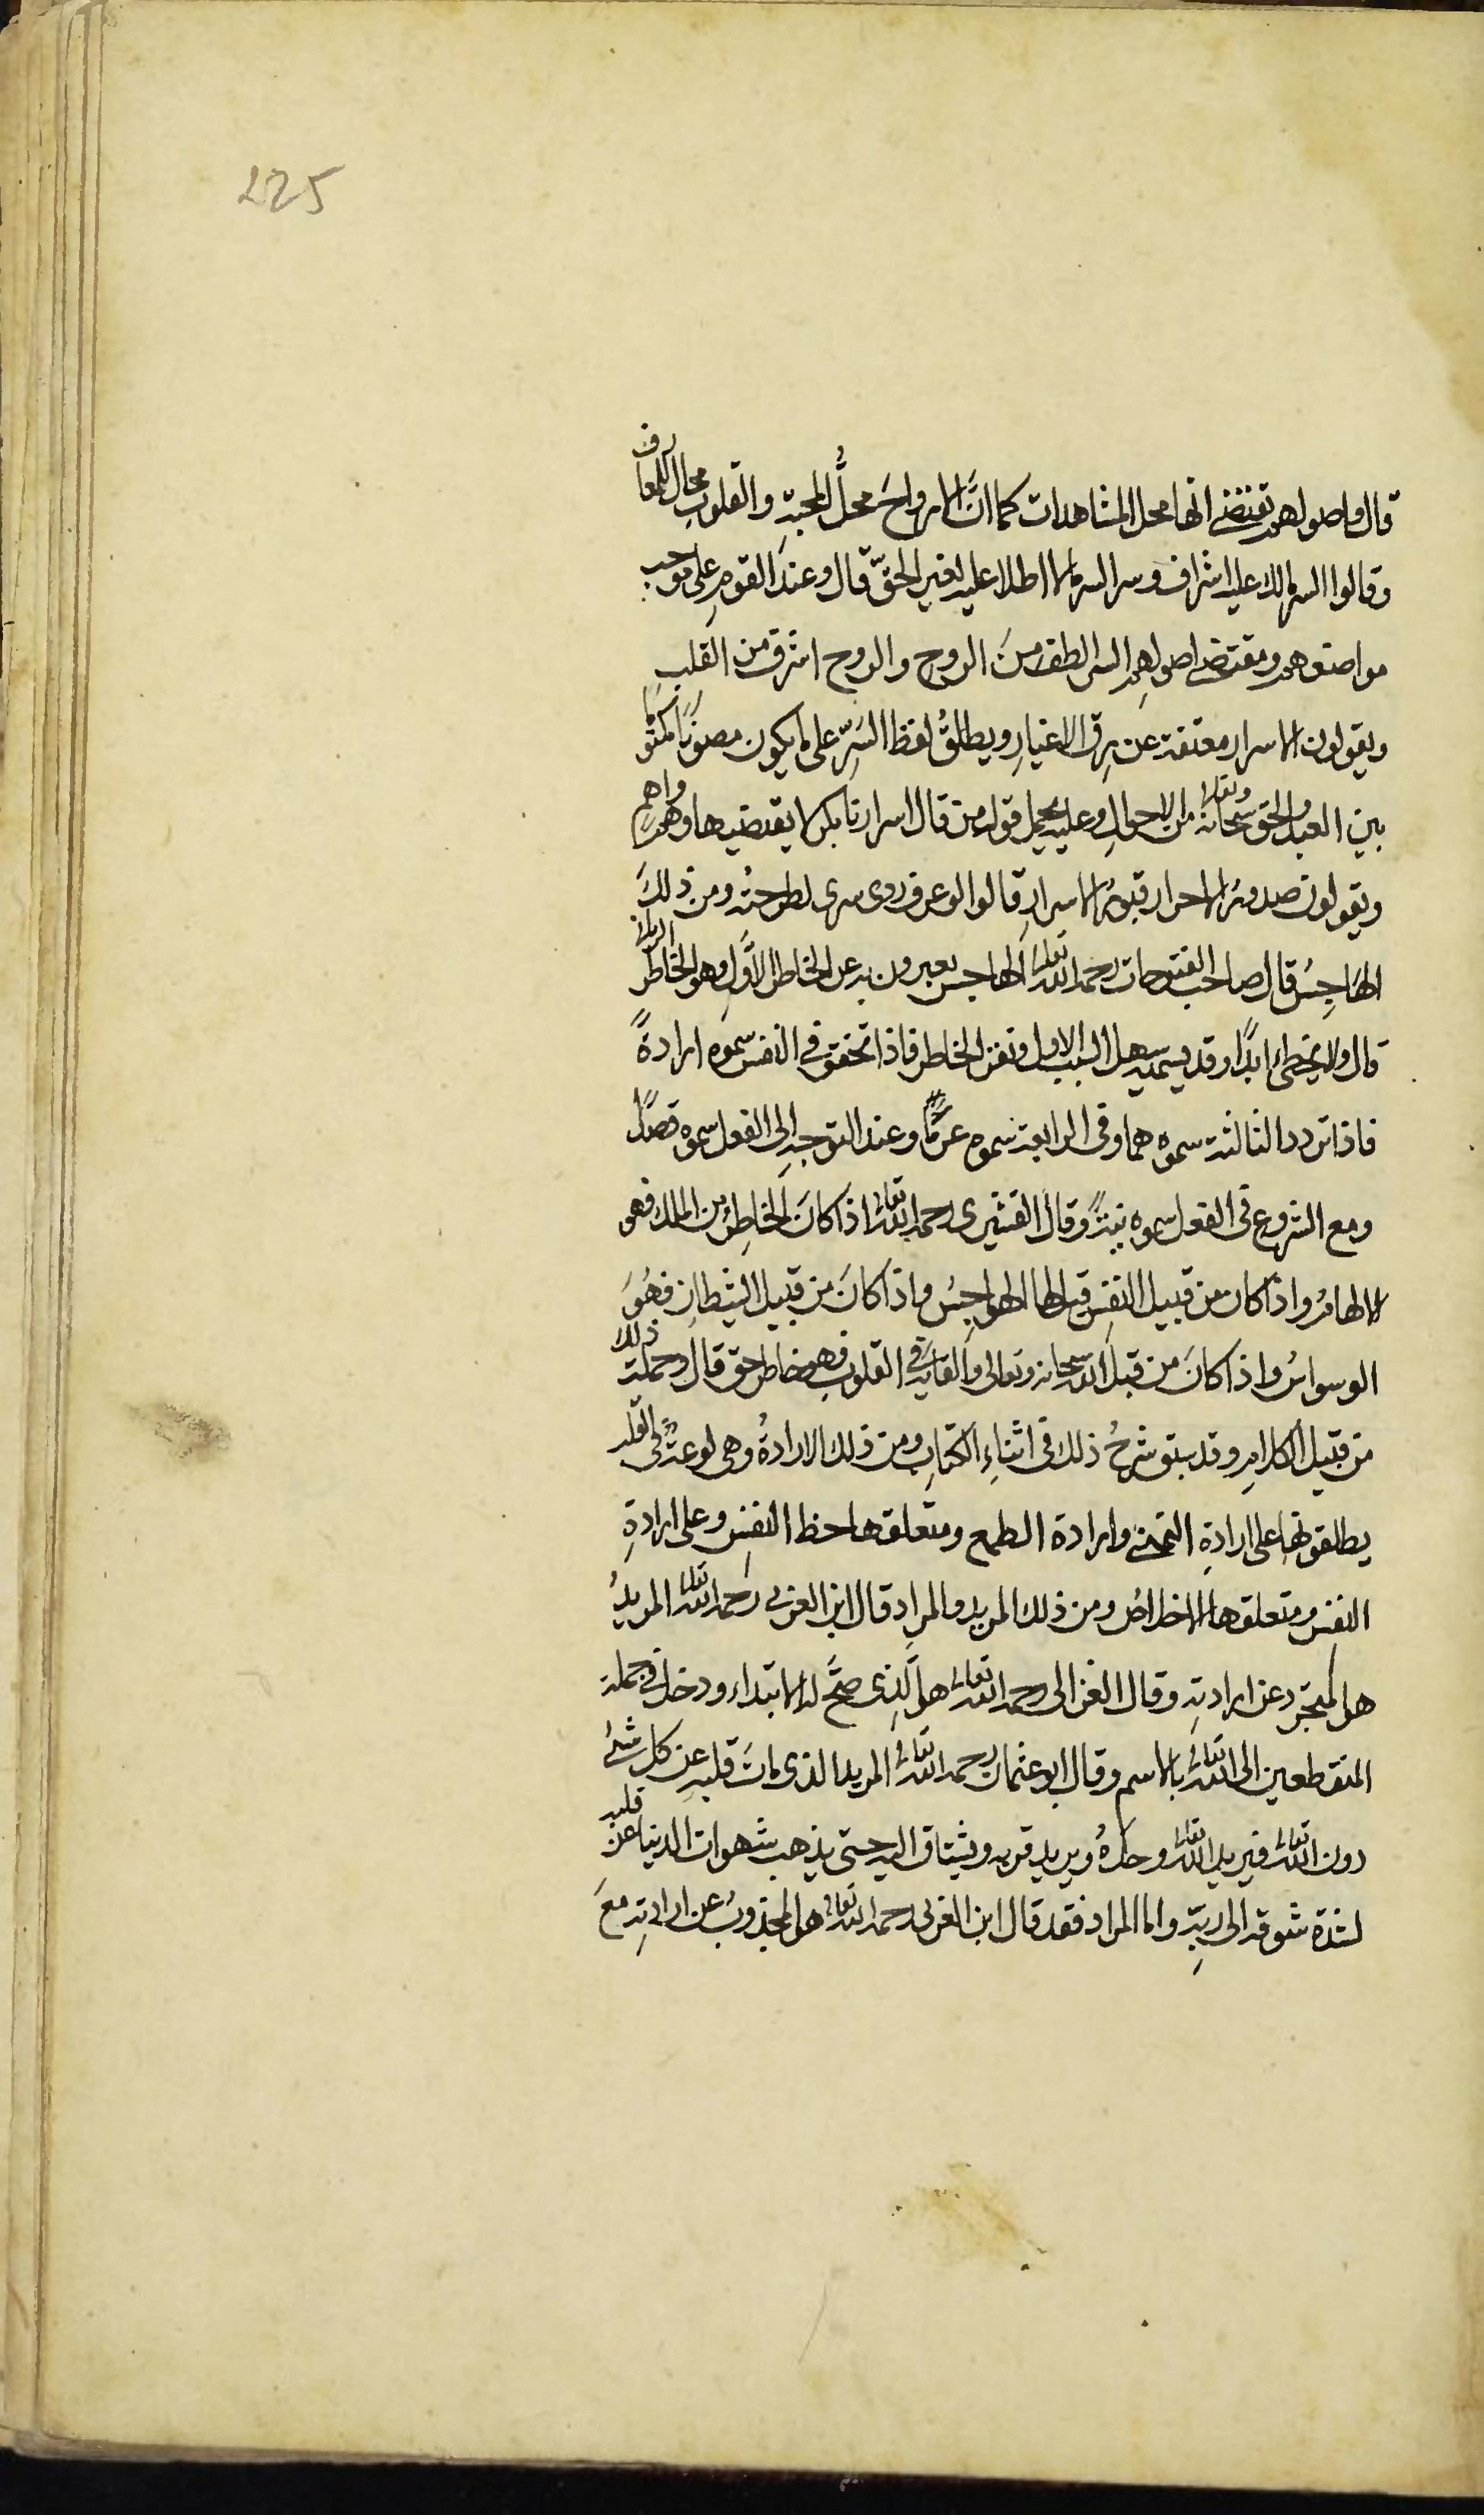 225
قال واصولهم تقتضى انها محل المشاهدات كما انَّ الارواحَ محلٌّ للمحبةِ والقلوبِ محال للمعارف
وقالوا السر مالك عليه اشراف وسر السر مالا اطلاع عليه لغير الحقّ قال وعندَ القومِ على موجب
مواضعوهم ومقتضى اصولهِم السر الطف منَ الروحِ والروح اشرف من القلب
ويقولون الاسرار معتقة عن رِق الاغيارِ ويطلقُ لفظ السَرِّ على ما يكون مصونًا مكتومًا
بين العبدِ والحق سبحانه وتعالى من الاحوالِ وعليه يحمل قول من قال اسرارنا بكر لم يقتضيها وهم واهم
ويقولون صدورُ الاحرار قبورُ الاسرارِ قالوا لو عرف زرى سرى لطرحتُه ومن ذلكَ
الهَاجِسُ قال صاحب الفتوحات رحمه الله تعالى الهاجس يعبرون به عن الخاطر الاوَّلِ وهو الخاطر الربانى
قال ولا يخطىء ابدًا وقد يسميه سهل السبب الاول ونقر الخاطر فاذا تحقق فى النفس سموه ارادةً
فاذا تردد الثالثة سموه هما وفى الرابعة سموه عزمًا وعند التوجهِ الى الفعل سموه قصدًا
ومع الشروع فى الفعل سموه نيةً وقال القشيرى رحمه الله تعالى اذا كانَ الخاطِرُ من الملك فهو
الالهامُ واذا كان من قبيل النفسِ قيل لها الهواجِسُ واذا كانَ من قبيل الشيطانِ فهُوَ
الوسواسُ واذا كانَ من قبل الله سبحانه وتعالى والقائه فى القلوبِ فهو خاطر حق قال وجملة ذلك
من قبيل الكلامِ وقد سبق شرحُ ذلك فى اثناءِ الكتابِ ومن ذلك الارادةُ وهى لوعةٌ فى القلب
يطلقونها على ارادةِ التمنى وارادة الطمع ومتعلقها حظ النفسِ وعلى ارادةِ
النفس ومتعلقها الاخلاصُ ومن ذلك المريد والمرادِ قال ابن العربى رَحمه الله تعالى المريدُ
هو المتجرد عن ارادتِه وقال الغزالى رحمه الله تعالى هو الَّذِى صحَّ له الابتداء ودخل فى جملة
المنقطعين الى الله تعالى بالاسم وقال ابو عثمان رحمه الله تعالى المريد الذى ماتَ قلبه عن كل شئ
دون الله تعالى فيريد الله تعالى وحدَهُ ويريد قربه ويشتاق اليه حتى يذهب شهوات الدنيا عن قلبه
لشدة شوقه الى ربِّه واما المراد فقد قال ابن العربى رحمه الله تعالى هو المجذوبُ عن ارادتِه مَعَ